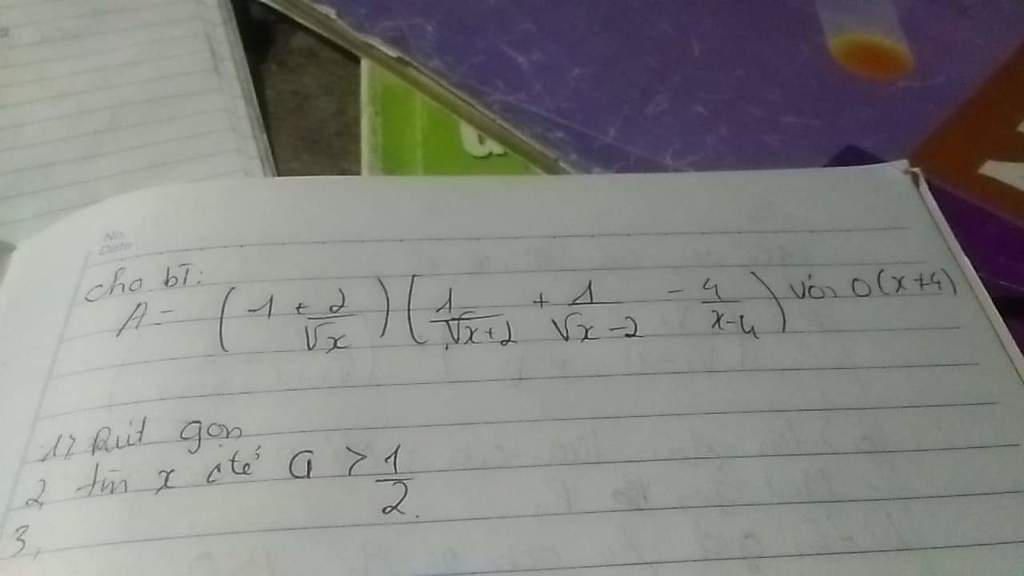 No.
Date
cho bT:
A = (1 + 2/√x)(1/√x+2 + 1/√x-2 - 4/x-4) với 0(x≠4)
1, Rút gọn
2, tìm x để G > 1/2.
3,